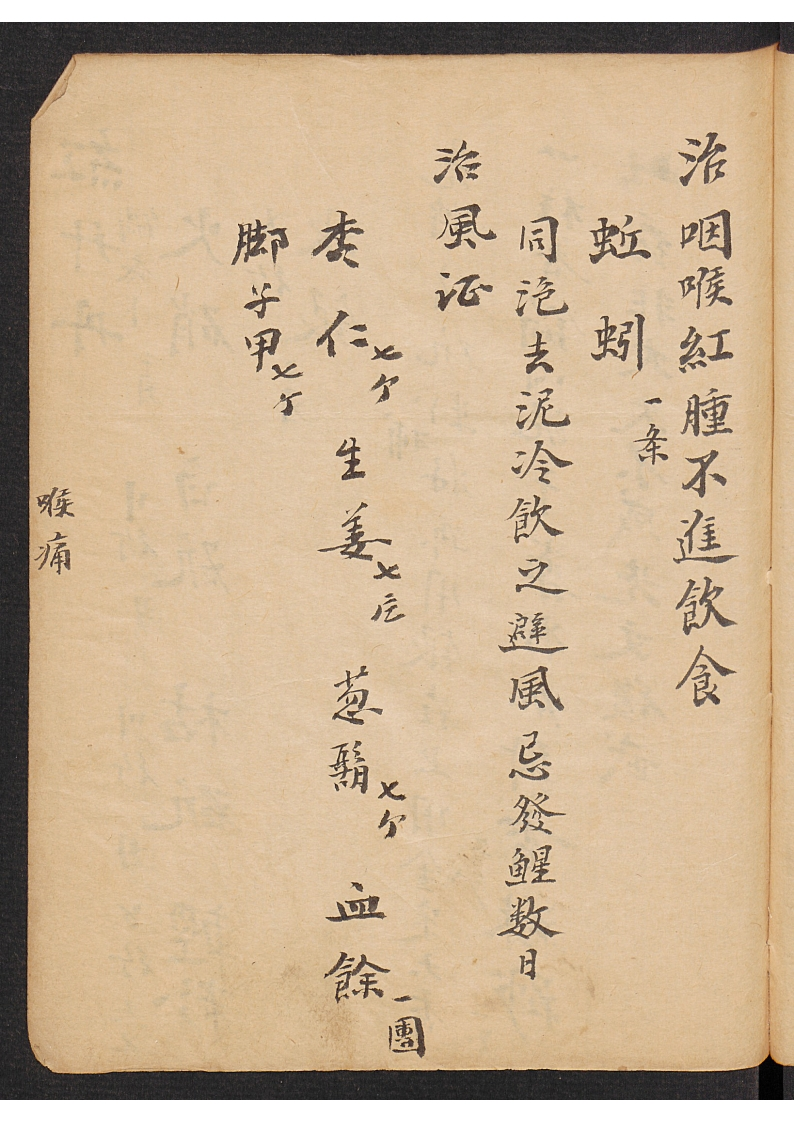 治咽喉紅腫不進飲食
蚯蚓一条
同滗去泥冷飲之避風忌發鯹数日
治風证
杏仁七个 生姜七片 葱鬍七个 血餘一團
脚子甲七个
喉痛